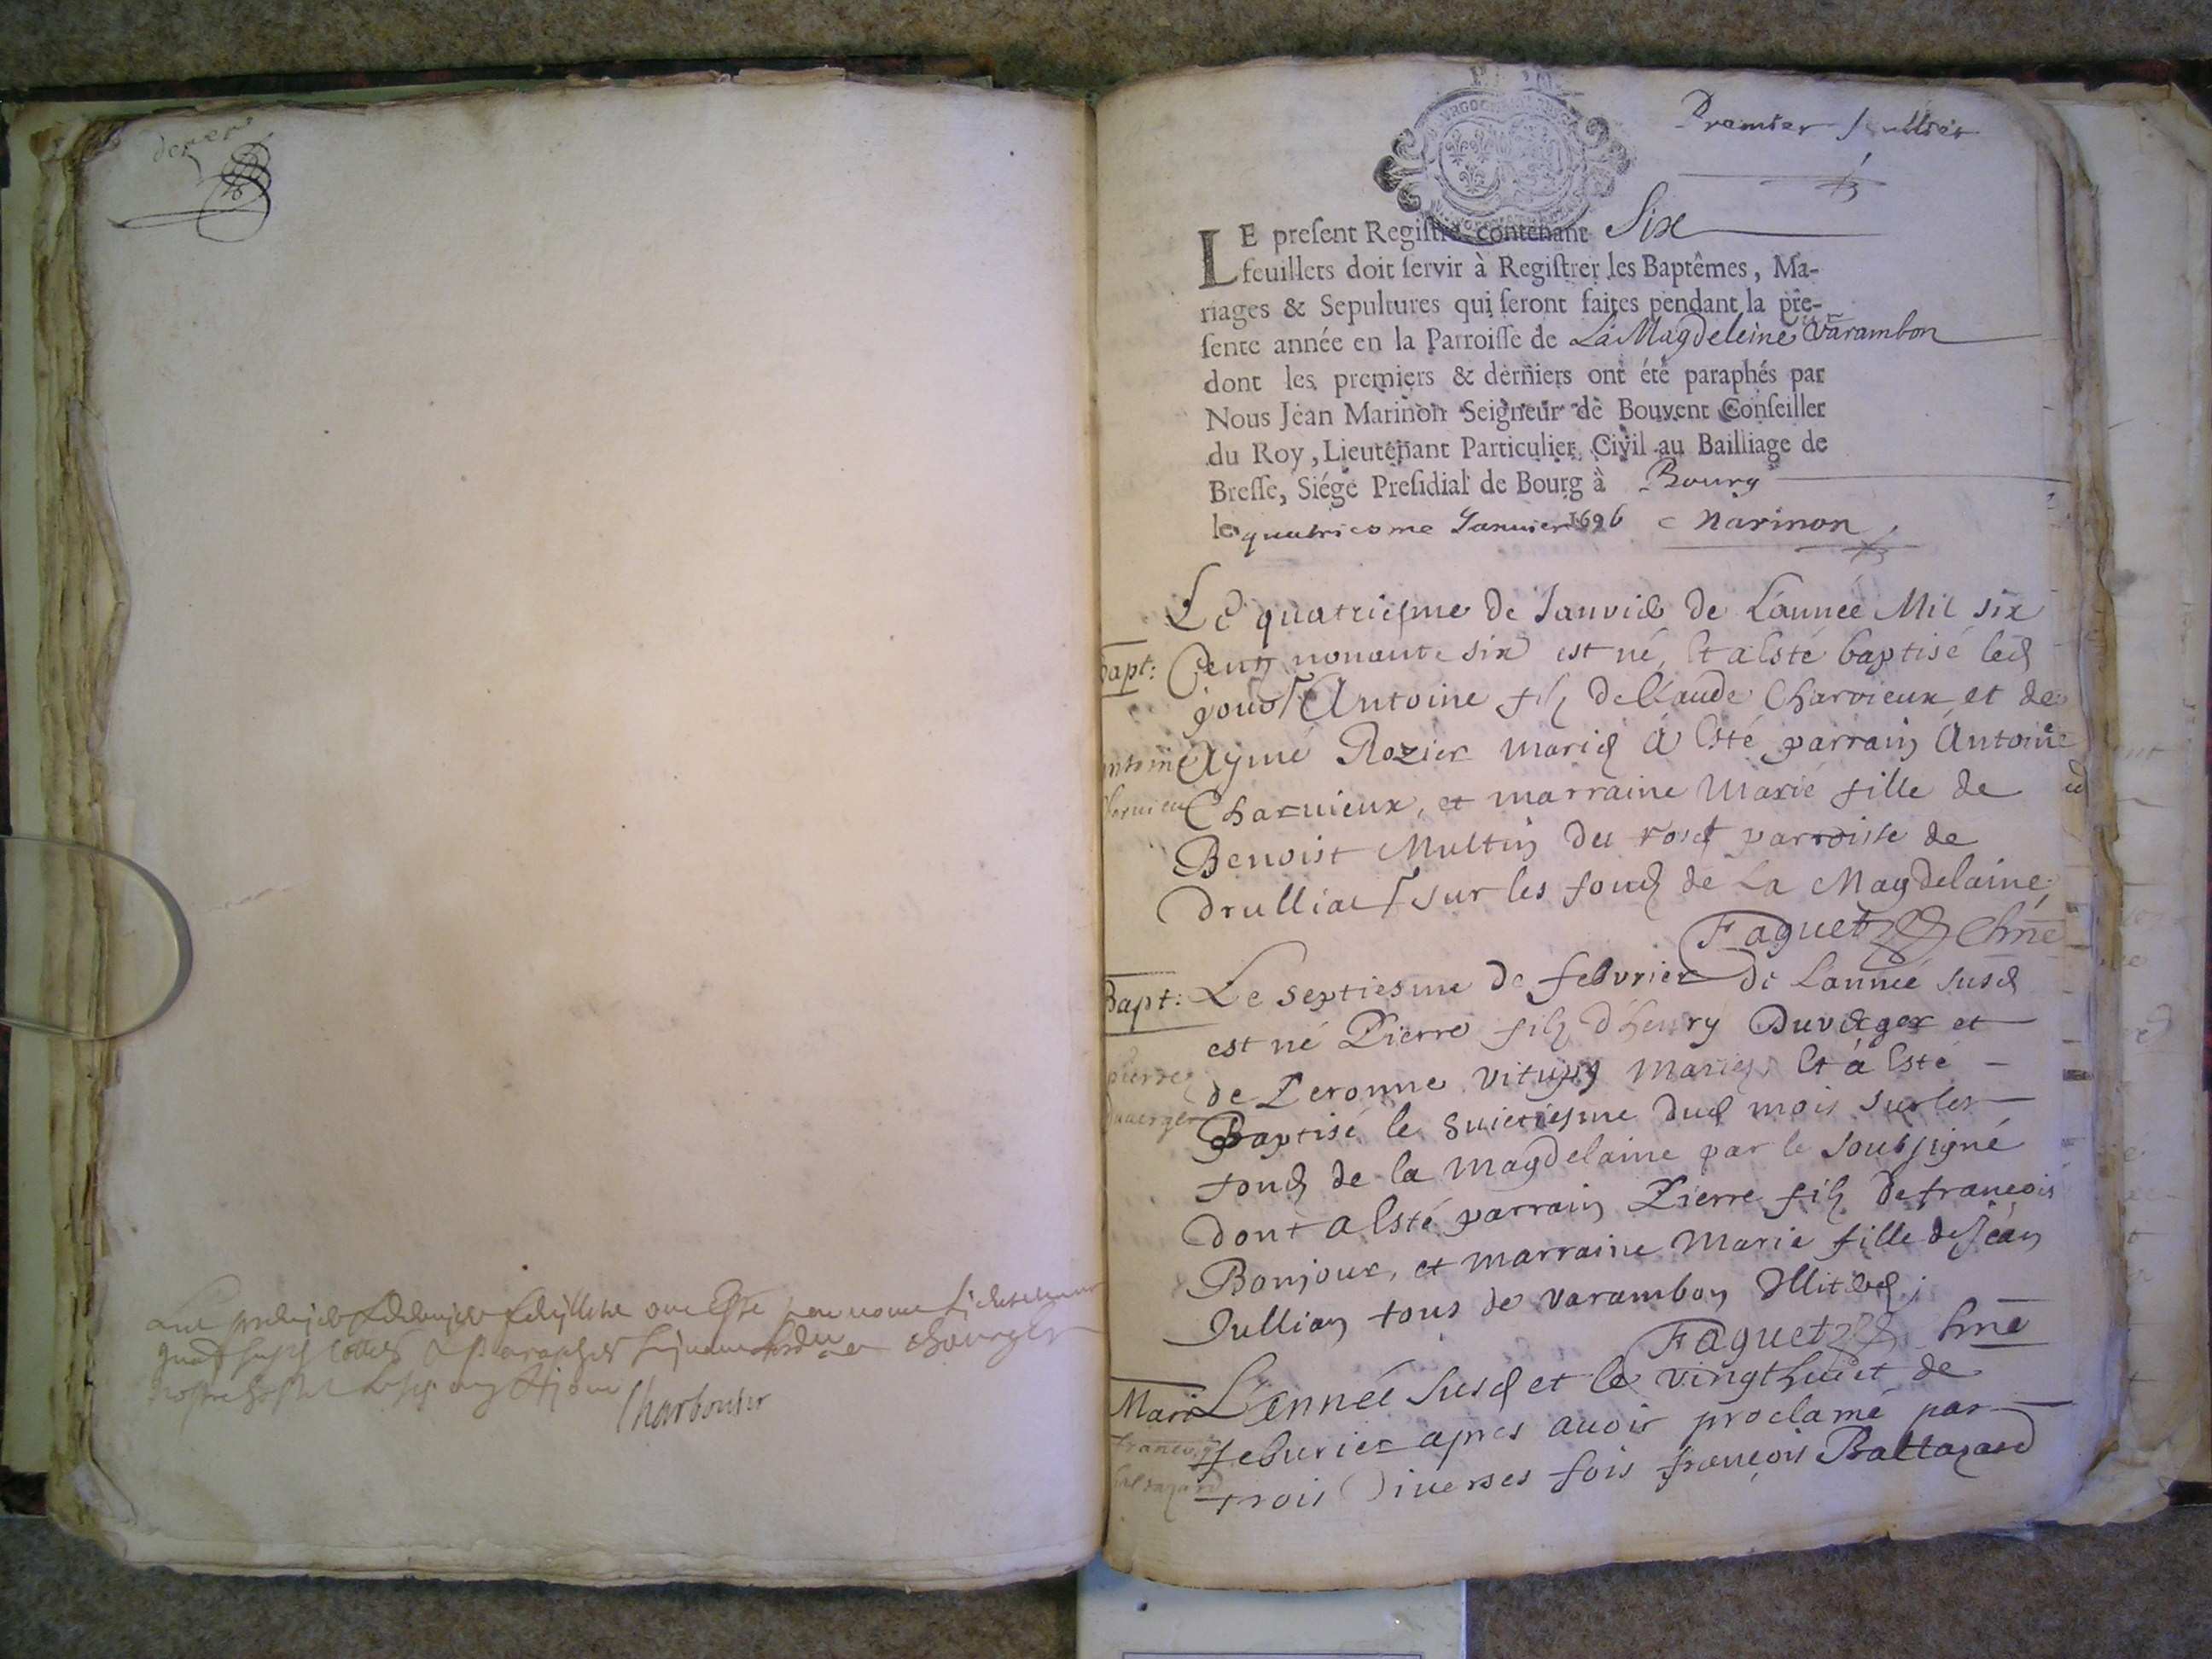 dernier
Charbonier
Premier feullier
LE present Registre contenant Six
feuillets doit servir à Registrer les Baptêmes, Ma-
riages & Sepultures qui seront faites pendant la pre-
sente année en la Parroisse de La Magdeleine Varambon
dont les premiers & derniers ont été paraphés par
Nous Jean Marinon Seigneur de Bouvent Conseiller
du Roy, Lieutenant Particulier Civil au Bailliage de
Bresse, Siége Presidial de Bourg à Bourg
le quatriesme Januier 1696 Marinon
Le quatriesme de Januier de L'année Mil six
Bapt: Cents nonante six est né, Et a Esté baptisé led
jour Antoine fils de Claude Charvieux et de
Antoine Aymé Rozier mariés A Esté parrain Antoine
Charuieux Charuieux, et marraine Marie fille de
Benoist Multin du parroisse de
Drulliat sur les fonds de La Magdelaine
Faguet
Bapt: Le septiesme de febvrier de L'année susd
est né Pierre fils d'henry Duverger et
pierre de Peronne mariés Et à Esté
duuerger Baptisé le huictiesme dud mois sur les
fonds de la Magdelaine par le soubsigné
Dont a Esté parrain Pierre fils de françois
Bonjour, et marraine Marie fille de Jean
Jullian tous de varambon Illiteres
Faguet
Mari L'année susd et le vingthuict de
françois feburier apres auoir proclamé par
baltazard trois Diuerses fois françois Baltazard